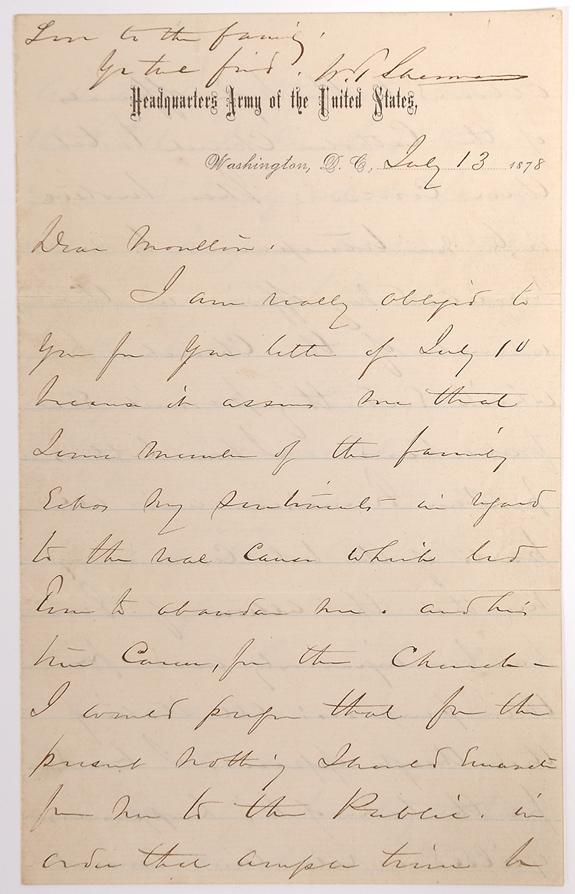 Love to the family.
Yr true frnd. W.T. Sherman
Headquarters Army of the United States,
Washington, D. C., July 13 1878
Dear Moulton.
I am really obliged to
you for your letter of July 10
because it assures me that
some member of the family
Echos my sentiments in regard
to the real cause which led
Tom to abandon me. and his
true Career, for the Church —
I would prefer that for the
present nothing should Emanate
from me to the Public. in
order that ample time be